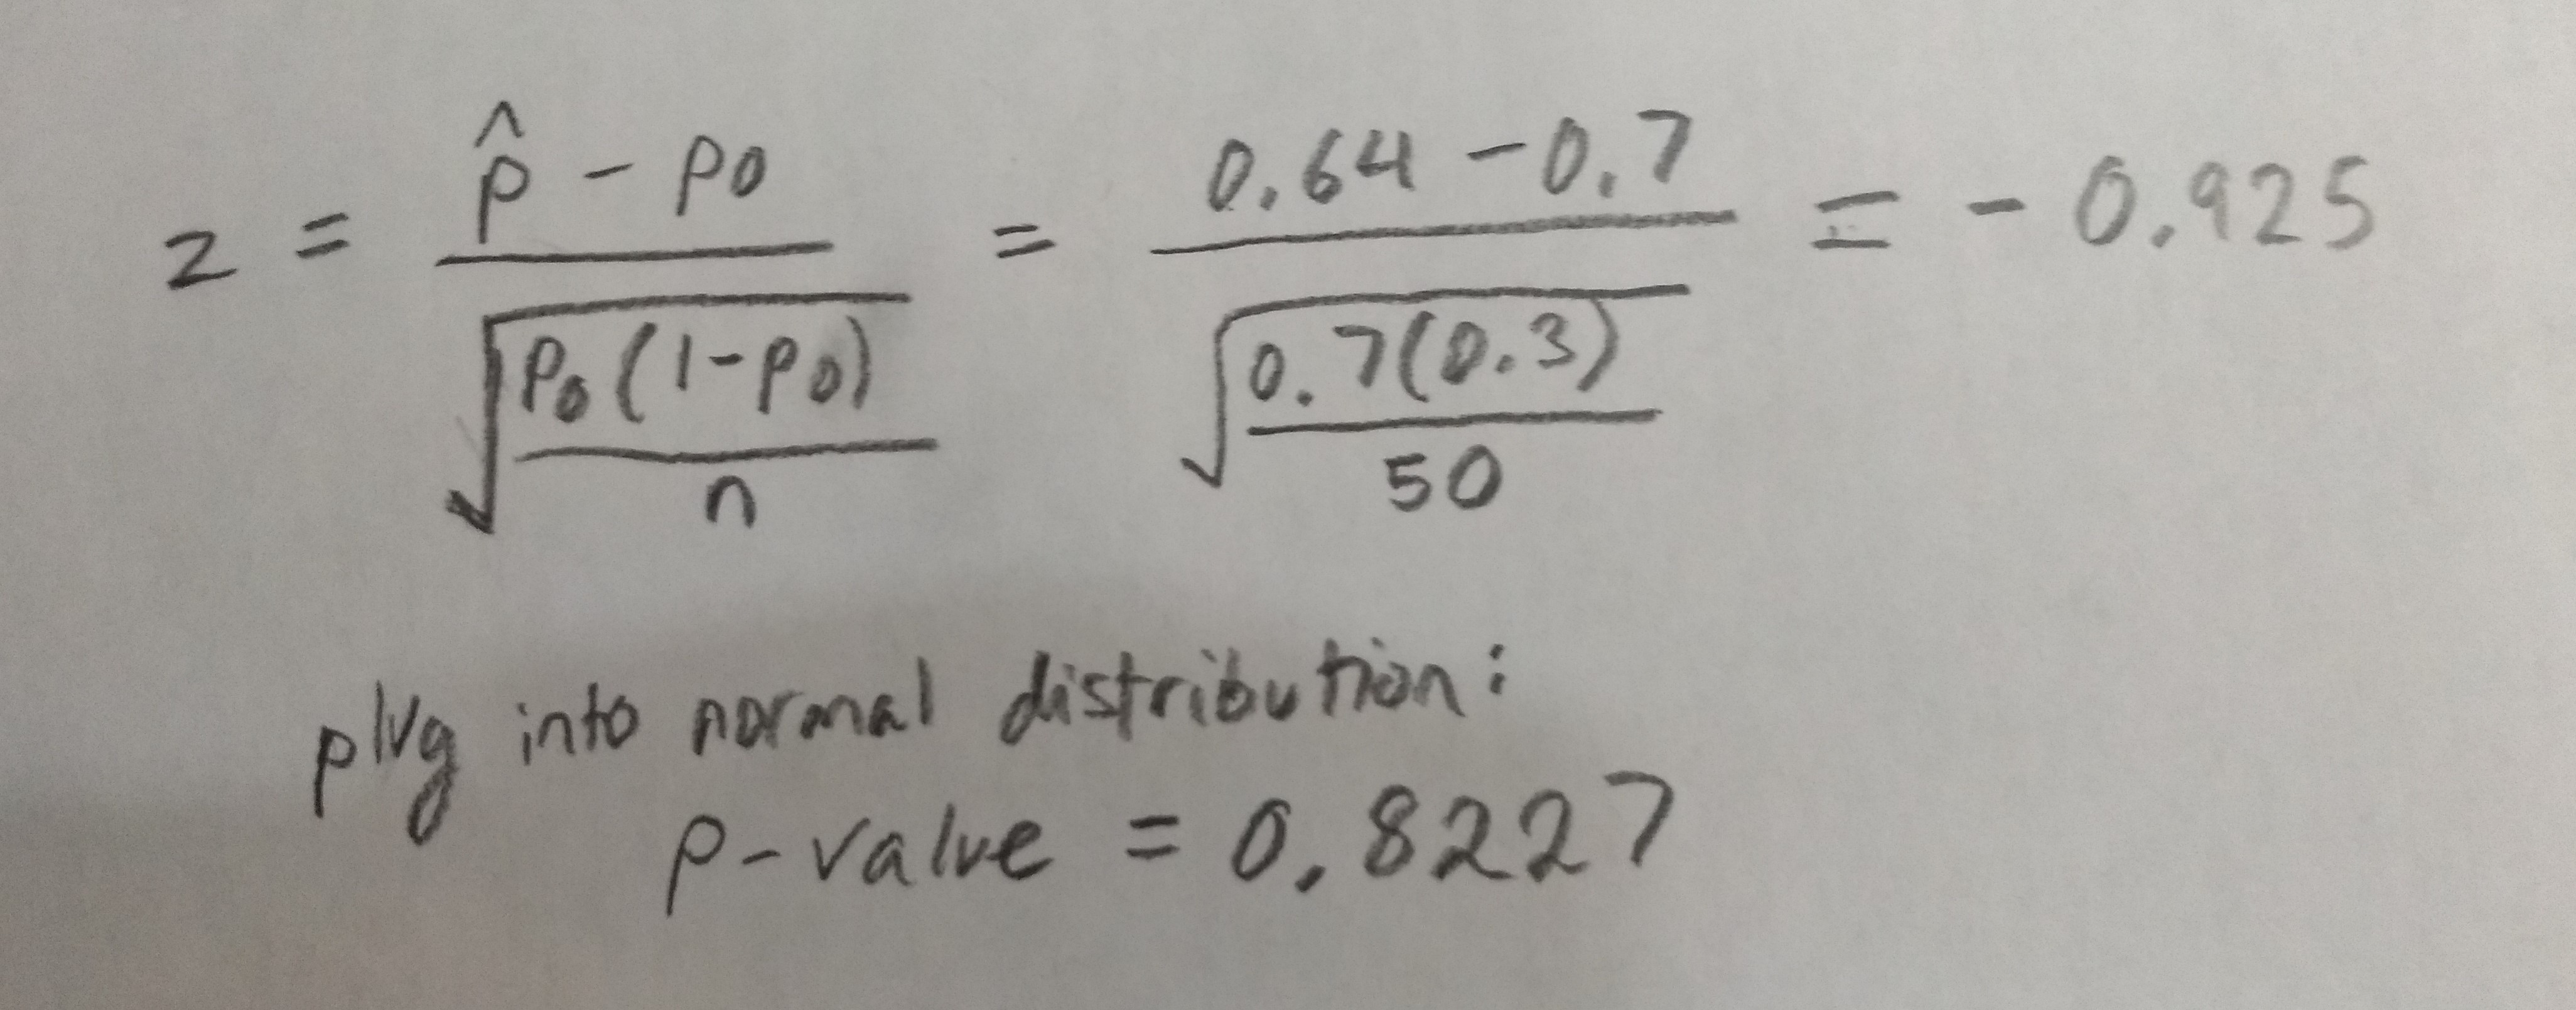 z = (p̂ - p0) / √(p0(1-p0)/n) = (0.64 - 0.7) / √(0.7(0.3)/50) = - 0.925
plug into normal distribution:
p-value = 0.8227